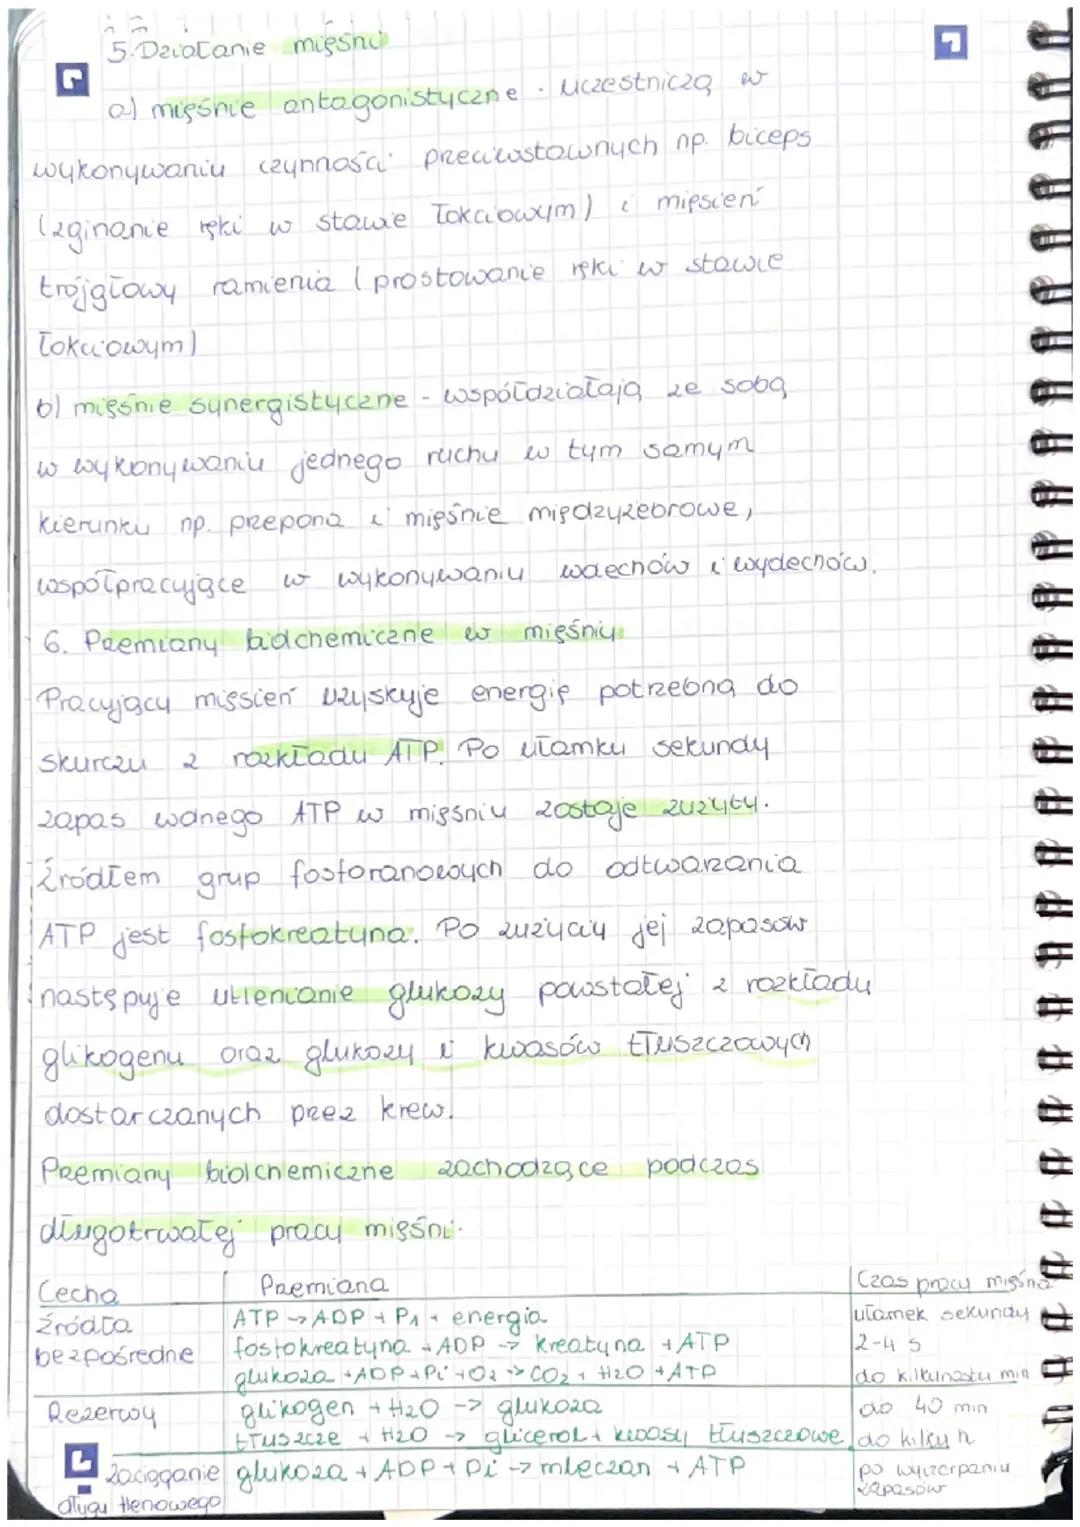 5. Działanie mięśni
a) mięśnie antagonistyczne - uczestniczą w
wykonywaniu czynności przeciwstawnych np. biceps
(zginanie ręki w stawie łokciowym) i mięsień
trójgłowy ramienia (prostowanie ręki w stawie
łokciowym)
b) mięśnie synergistyczne - współdziałają ze sobą
w wykonywaniu jednego ruchu w tym samym
kierunku np. przepona i mięśnie międzyżebrowe,
współpracujące w wykonywaniu wdechów i wydechów.
6. Przemiany biochemiczne w mięśniu
Pracujący mięsień uzyskuje energię potrzebną do
skurczu z rozkładu ATP. Po ułamku sekundy
zapas wolnego ATP w mięśniu zostaje zużyty.
Źródłem grup fosforanowych do odtwarzania
ATP jest fosfokreatyna. Po zużyciu jej zapasów
następuje utlenianie glukozy powstałej z rozkładu
glikogenu oraz glukozy i kwasów tłuszczowych
dostarczanych przez krew.
Przemiany biochemiczne zachodzące podczas
długotrwałej pracy mięśni.
Cecha Przemiana Czas pracy mięśna
źródła ATP -> ADP + Pi + energia ułamek sekundy
bezpośrednie fosfokreatyna + ADP -> kreatyna + ATP 2-4 s
glukoza + ADP + Pi + O2 -> CO2 + H2O + ATP do kilkunastu min
Rezerwy glikogen + H2O -> glukoza do 40 min
tłuszcze + H2O -> glicerol + kwasy tłuszczowe do kilku h
zaciąganie glukoza + ADP + Pi -> mleczan + ATP po wyczerpaniu
długu tlenowego zapasów